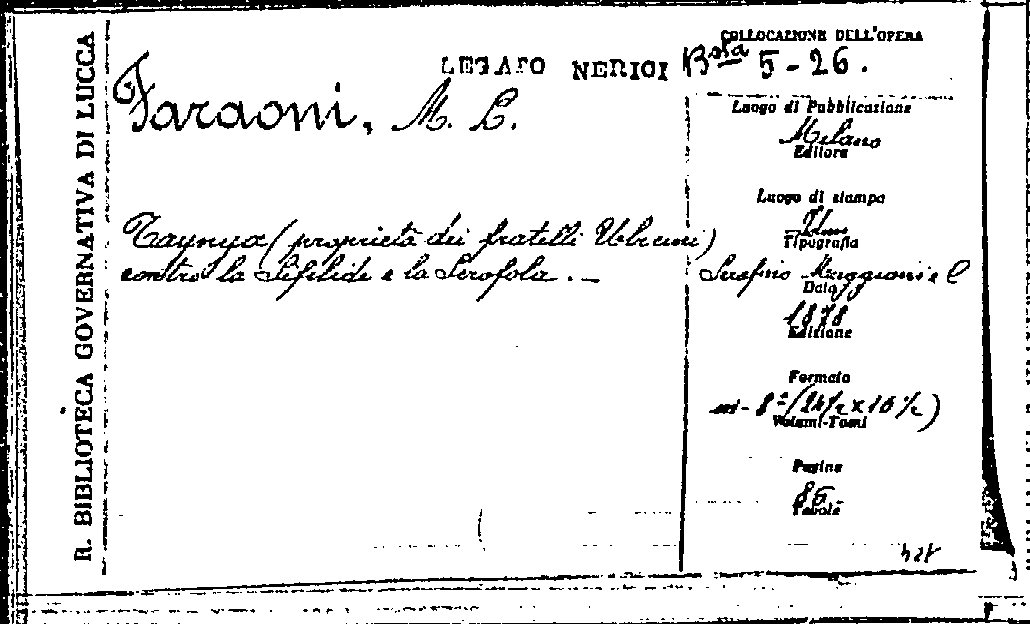 R. BIBLIOTECA GOVERNATIVA DI LUCCA
COLLOCAZIONE DELL'OPERA
LEGATO NERICI Bsta 5-26.
Faraoni, M. L.
Luogo di Pubblicazione
Milano
Editore
Luogo di stampa
Tipografia
Tayuya (proprietà dei fratelli Ubicini)
contro la Sifilide e la Scrofola. –
Serafino Muggiani e C
Data
1878
Edizione
Formato
in-8° (24½ x 16½)
Volumi-Tomi
Pagine
85
Tavole